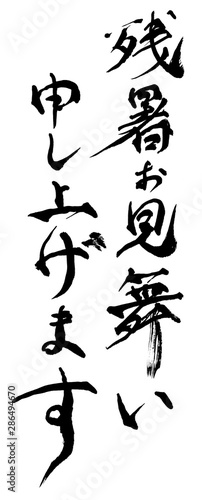 残暑お見舞い
申し上げます
Adobe Stock | #286494670